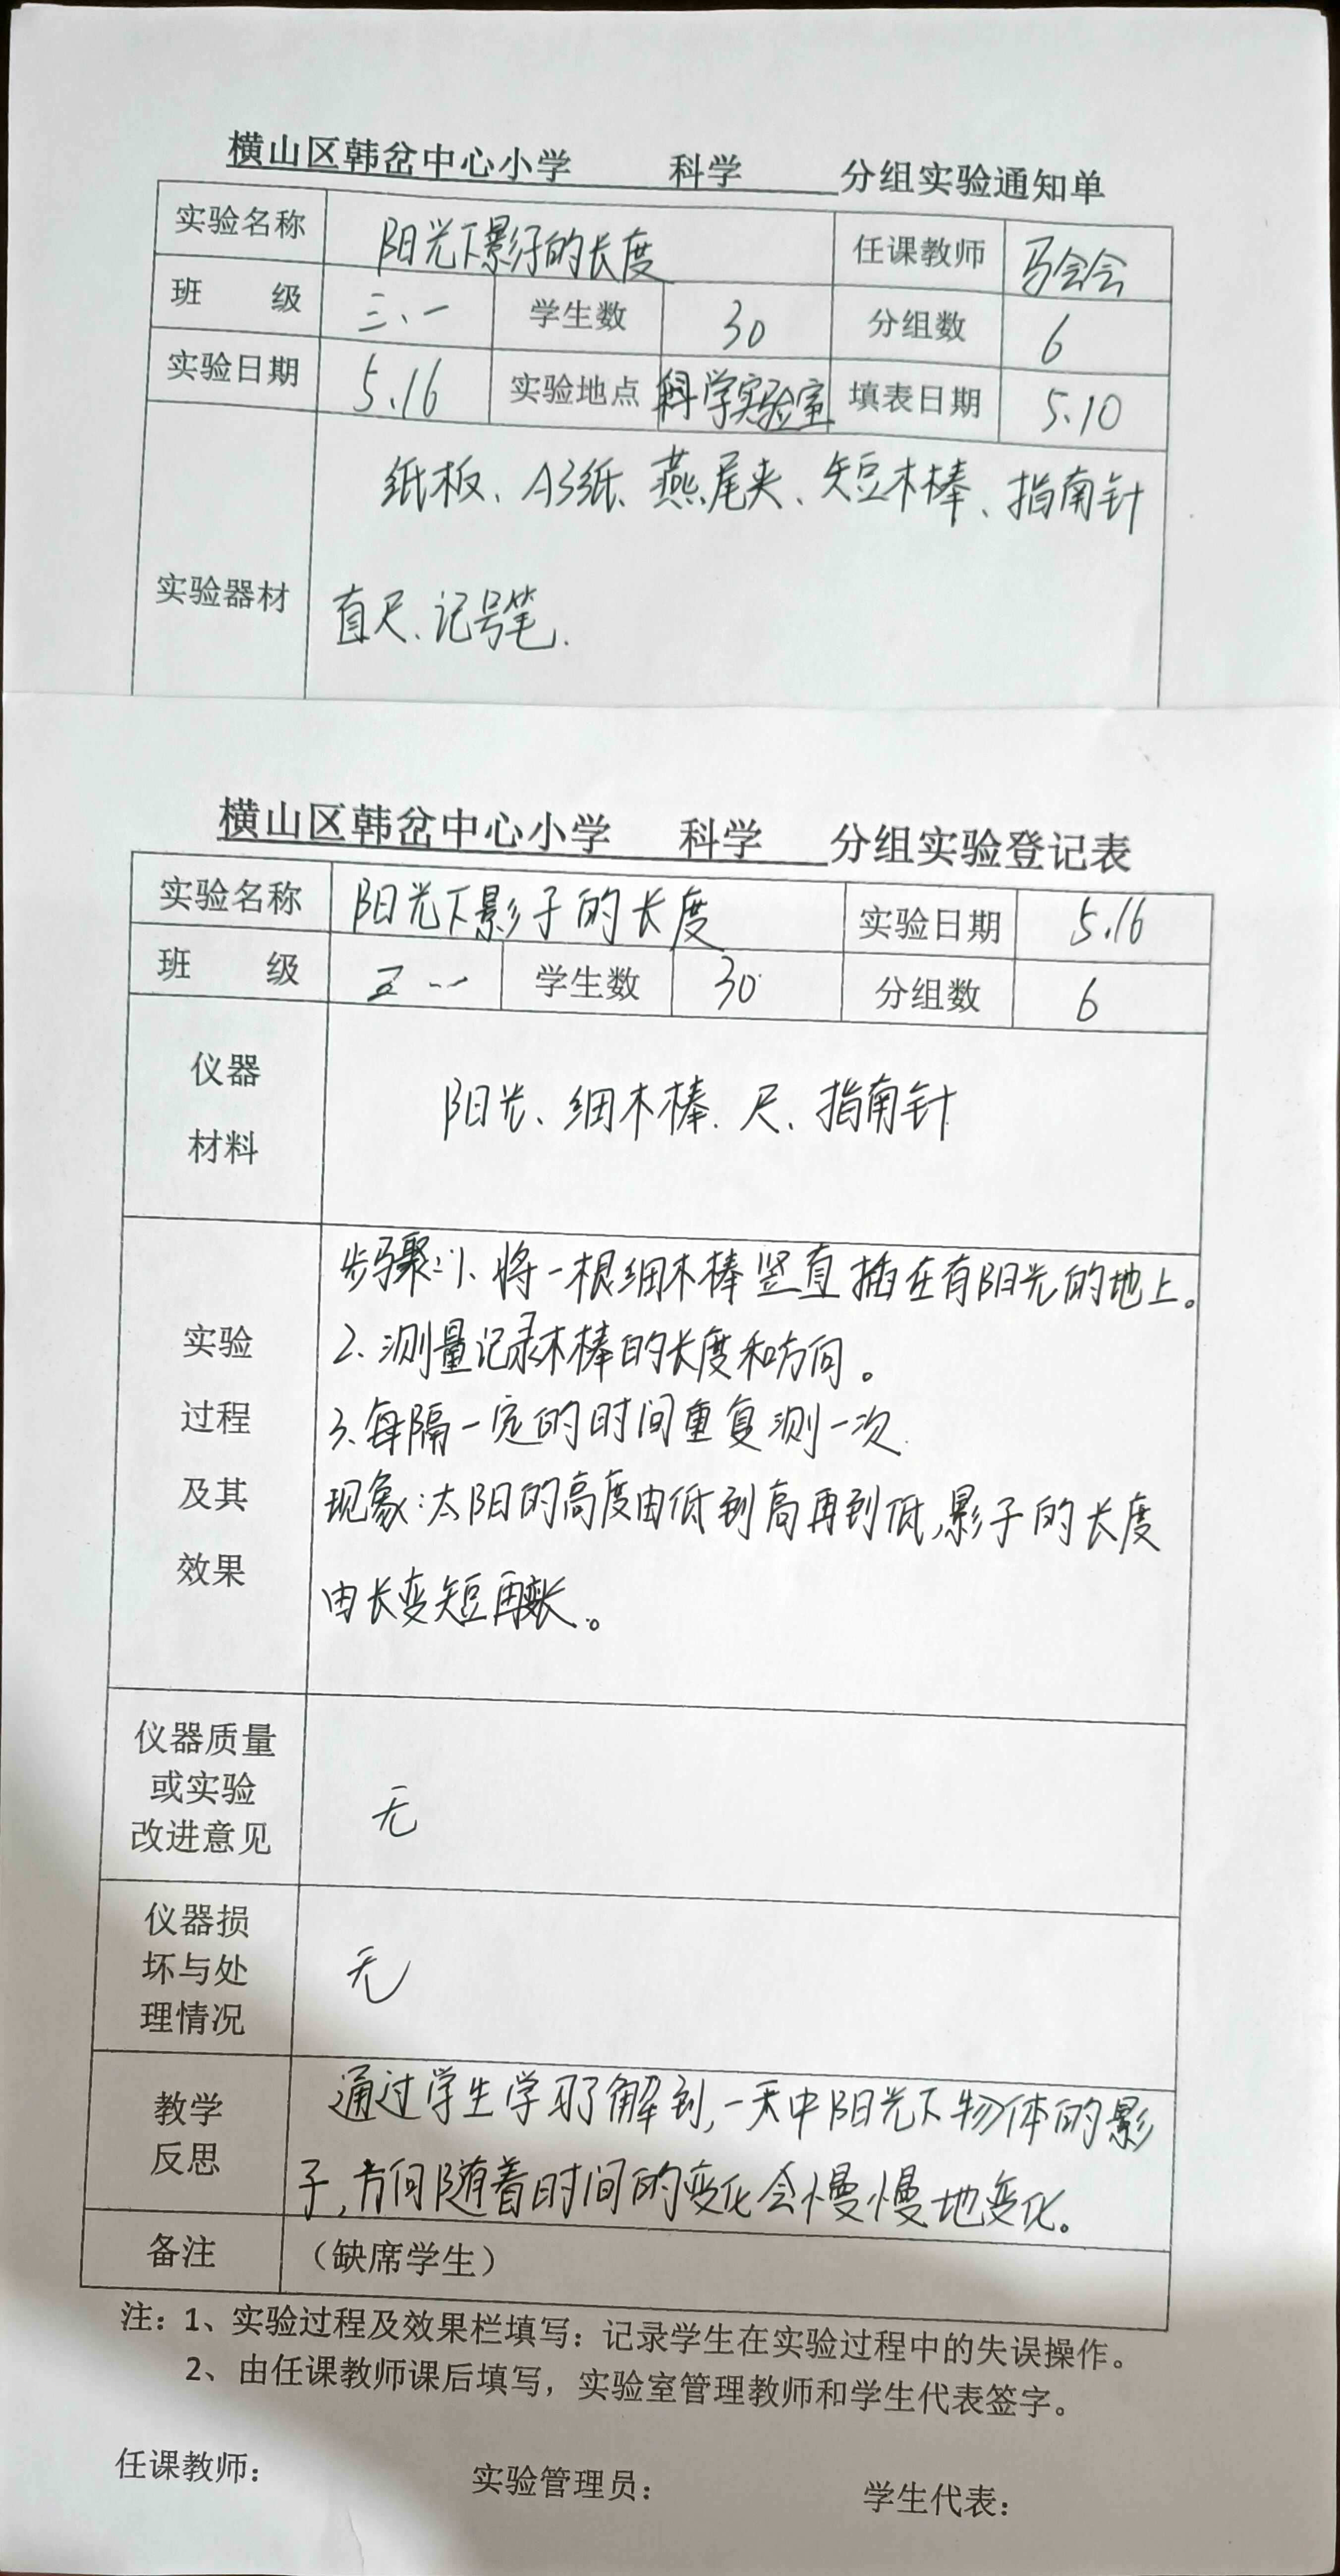 横山区韩岔中心小学 科学 分组实验通知单
实验名称 阳光下影子的长度 任课教师 马会会
班 级 三、一 学生数 30 分组数 6
实验日期 5.16 实验地点 科学实验室 填表日期 5.10
纸板、A3纸、燕尾夹、短木棒、指南针
实验器材
直尺、记号笔.
横山区韩岔中心小学 科学 分组实验登记表
实验名称 阳光下影子的长度 实验日期 5.16
班 级 学生数 30 分组数 6
仪器
材料
阳光、细木棒、尺、指南针
实验
过程
及其
效果
步骤:1、将一根细木棒竖直插在有阳光的地上。
2、测量记录木棒的长度和方向。
3、每隔一定的时间重复测一次.
现象:太阳的高度由低到高再到低,影子的长度
由长变短再变长。
仪器质量
或实验
改进意见
无
仪器损
坏与处
理情况
无
教学
反思
通过学生学习了解到,一天中阳光下物体的影
子,方向随着时间的变化会慢慢地变化。
备注 (缺席学生)
注:1、实验过程及效果栏填写:记录学生在实验过程中的失误操作。
2、由任课教师课后填写,实验室管理教师和学生代表签字。
任课教师: 实验管理员: 学生代表: